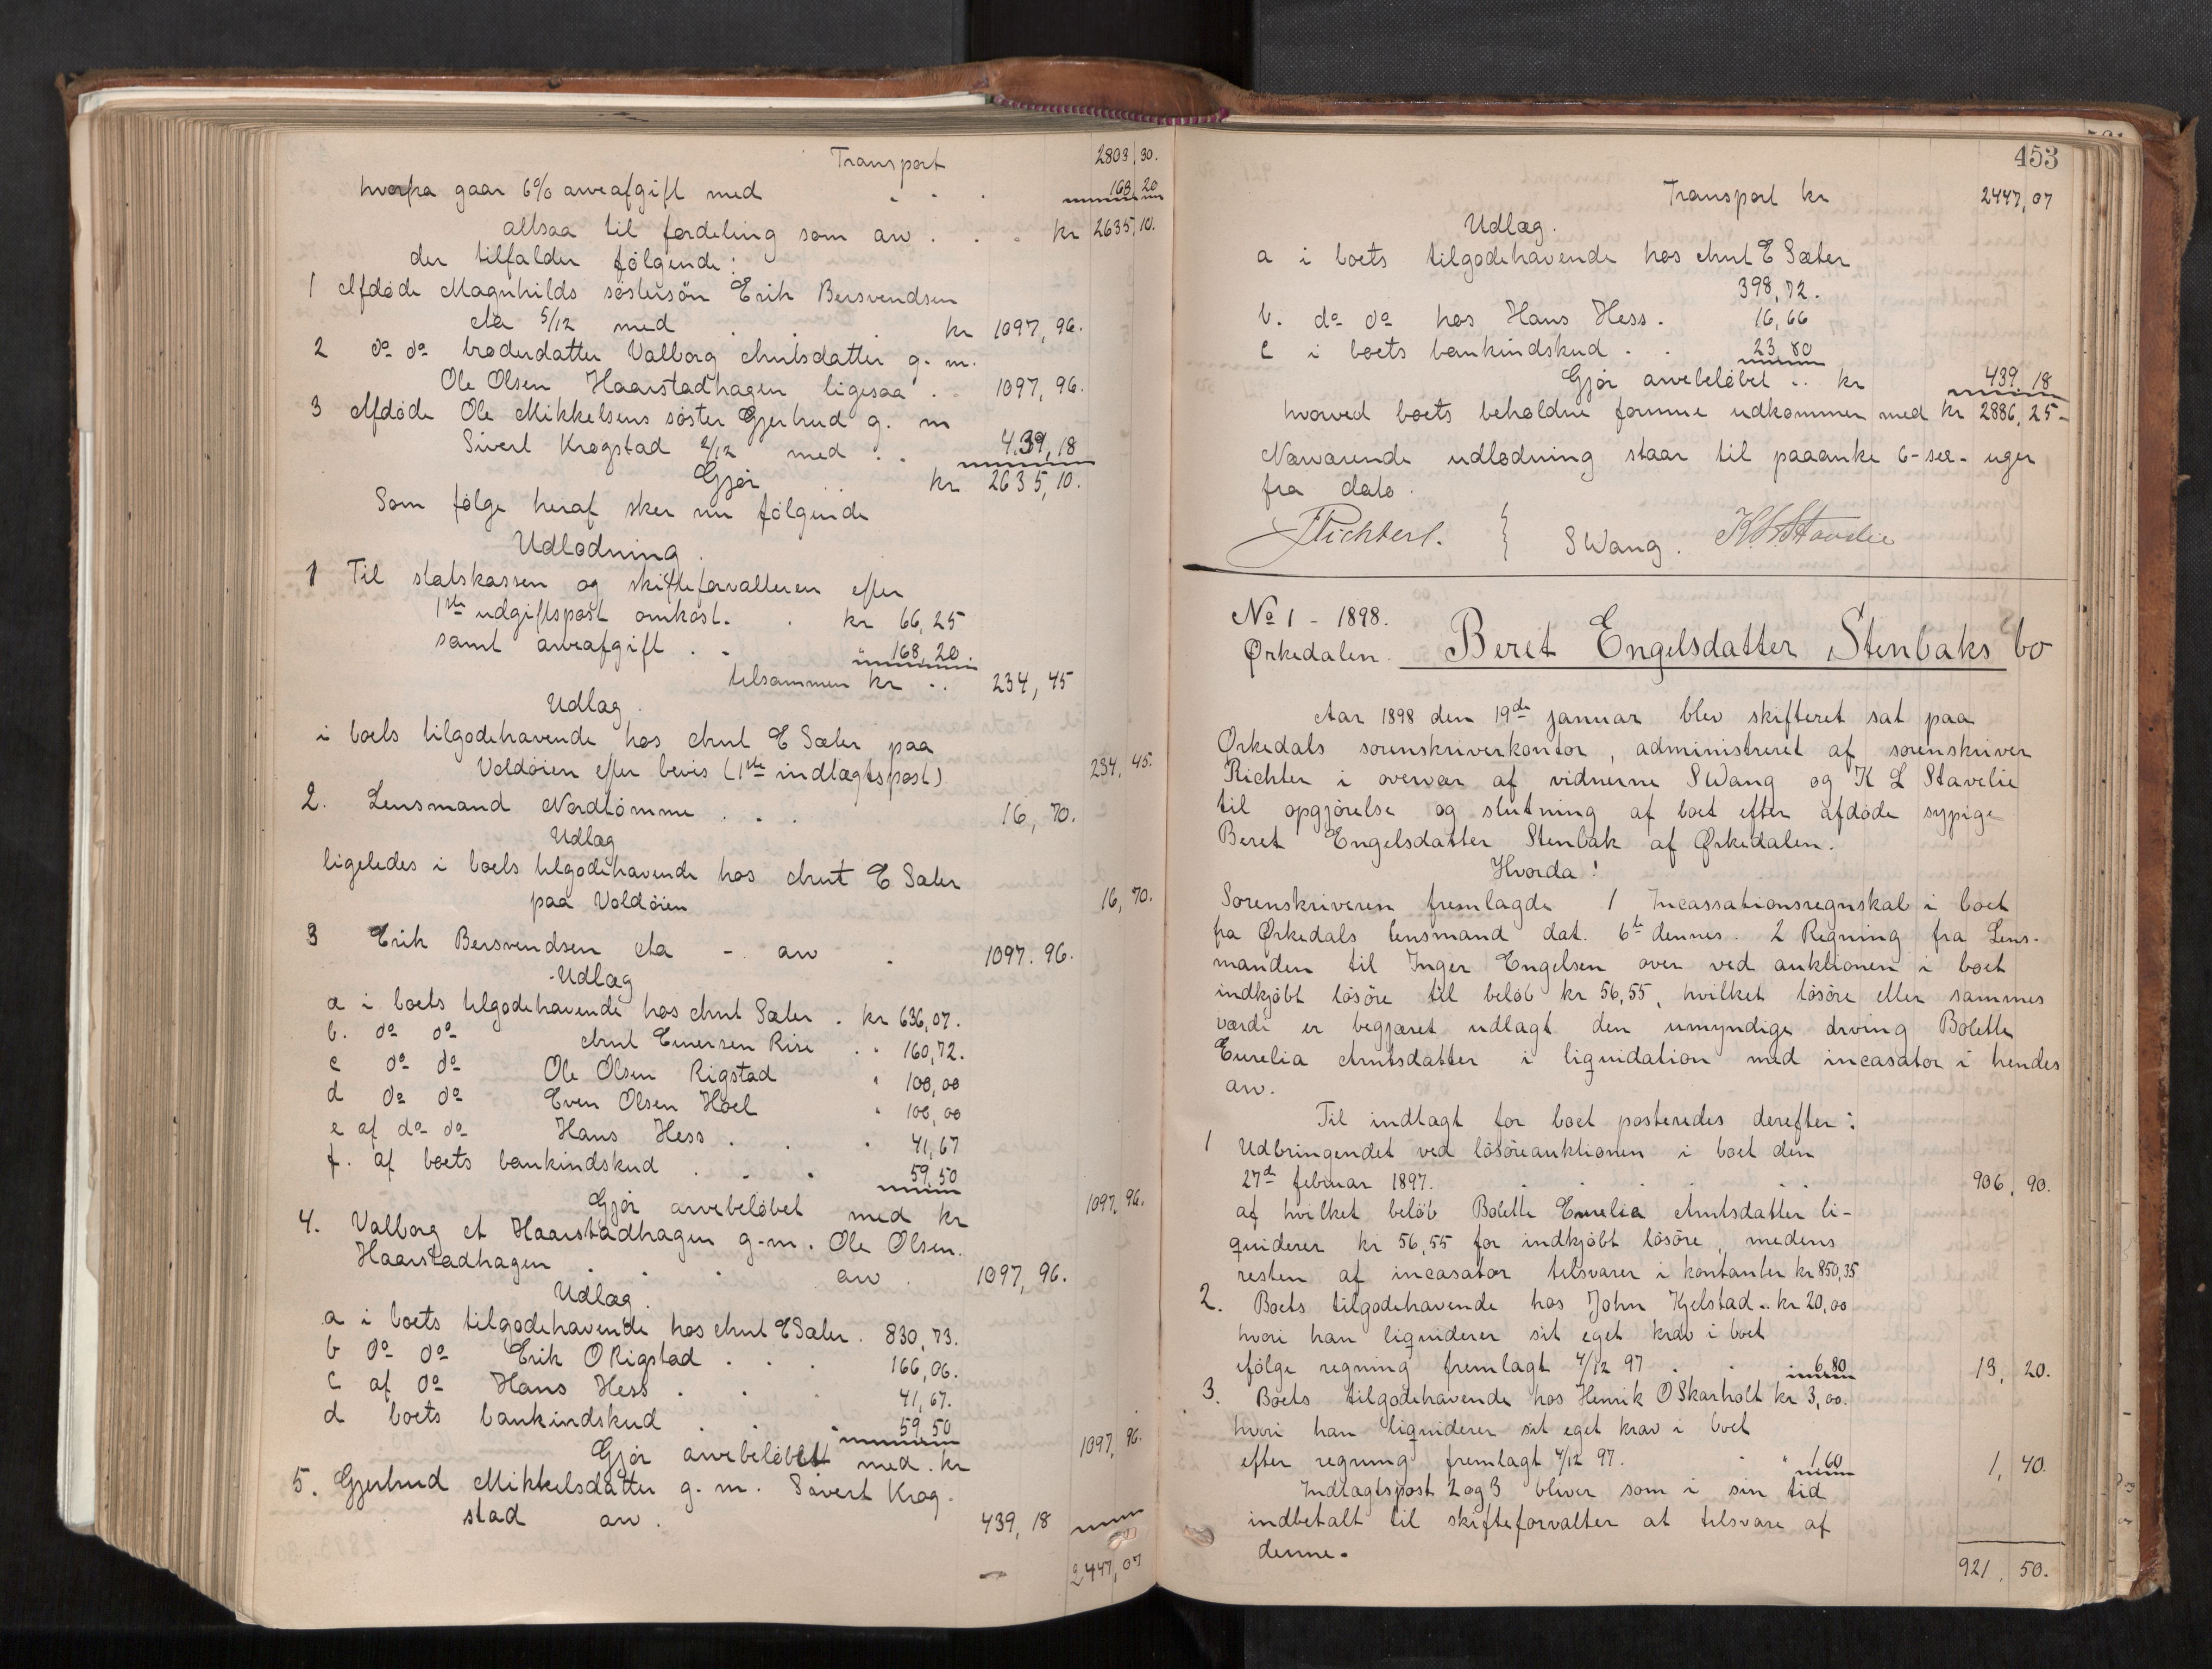 Transport 2803,30.
hvorfra gaar 6% arveafgift med . . . 168,20
altsaa til fordeling som arv . . . kr 2635,10.
der tilfalder følgende:
1 Afdøde Magnhilds søstersøn Erik Bersvendsen
Aa 5/12 med . . . kr 1097,96.
2 do do broderdatter Valborg Arntsdatter g. m.
Ole Olsen Haarstadhagen ligesaa . 1097,96.
3 Afdøde Ole Mikkelsens søster Gjertrud g. m
Sivert Krogstad 2/12 med . . 439,18
Gjør . . kr 2635,10.
Som følge heraf sker nu følgende
Udlodning.
1 Til statskassen og skifteforvalteren efter
1ste udgiftspost omkost. . kr 66,25
samt arveafgift . . " 168,20.
tilsammen kr . . 234,45
Udlæg.
i boets tilgodehavende hos Arnt E Sæter paa
Voldøien efter bevis (1ste indtægtspost) 234,45.
2. Lensmand Nordtømme . . . 16,70.
Udlæg
ligeledes i boets tilgodehavende hos Arnt E Sæter
paa Voldøien 16,70.
3 Erik Bersvendsen Aa - arv . 1097.96.
Udlæg
a i boets tilgodehavende hos Arnt Sæter . kr 636,07.
b. do do Arnt Einersen Rise . " 160,72.
c do do Ole Olsen Rigstad " 100,00
d do do Even Olsen Hoel " 100,00
e af do do Hans Hess . . . 41,67
f. af boets bankindskud . . . 59,50
Gjør arvebeløbet med kr 1097,96.
4. Valborg A Haarstadhagen g. m. Ole Olsen.
Haarstadhagen . . . arv . 1097,96.
Udlæg.
a i boets tilgodehavende hos Arnt E Sæter . 830,73.
b do do Erik O Rigstad . . . 166,06.
c af do Hans Hess . . 41,67.
d boets bankindskud . . . 59,50
Gjør arvebeløbet med . kr 1097,96.
5. Gjertrud Mikkelsdatter g. m. Sivert Krog-
stad arv . 439,18
2447,07
453
Transport kr 2447,07
Udlæg.
a i boets tilgodehavende hos Arnt E Sæter
398,72.
b. do do hos Hans Hess . 16,66
c i boets bankindskud . . 23,80
Gjør arvebeløbet . . kr 439,18
hvorved boets beholdne formue udkommer med kr 2886,25-
Nærværende udlodning staar til paaanke 6-sex- uger
fra dato.
Richter. } S Wang. K L Stavlie
No 1 - 1898.
Ørkedalen. Beret Engelsdatter Stenbaks bo
Aar 1898 den 19de januar blev skifteret sat paa
Ørkedals sorenskriverkontor, administreret af sorenskriver
Richter i overvær af vidnerne S Wang og K L Stavlie
til opgjørelse og slutning af boet efter afdøde sypige
Beret Engelsdatter Stenbak af Ørkedalen.
Hvorda:
Sorenskriveren fremlagde 1 Incassationsregnskab i boet
fra Ørkedals lensmand dat. 6te dennes. 2 Regning fra Lens-
manden til Inger Engelsen over ved auktionen i boet
indkjøbt løsøre til beløb kr 56,55, hvilket løsøre eller sammes
værdi er begjæret udlagt den umyndige arving Bolette
Eurelia Arntsdatter i liquidation med incasator i hendes
arv.
Til indtægt for boet posteredes derefter:
1 Udbringendet ved løsøreauktionen i boet den
27de februar 1897. . . . . . . 906,90.
af hvilket beløb Bolette Eurelia Arntsdatter li-
quiderer kr 56,55 for indkjøbt løsøre, medens
resten af incasator tilsvarer i kontanter kr 850,35
2. Boets tilgodehavende hos John Kjelstad . . kr 20,00
hvori han liquiderer sit eget krav i boet
ifølge regning fremlagt 4/12 97 . . . 6,80 13,20.
3. Boets tilgodehavende hos Henrik O Skarholt kr 3,00.
hvori han liquiderer sit eget krav i boet
efter regning fremlagt 4/12 97. . " 1,60 1,40.
Indtægtspost 2 og 3 bliver som i sin tid
indbetalt til skifteforvalter at tilsvare af
denne.
921,50.